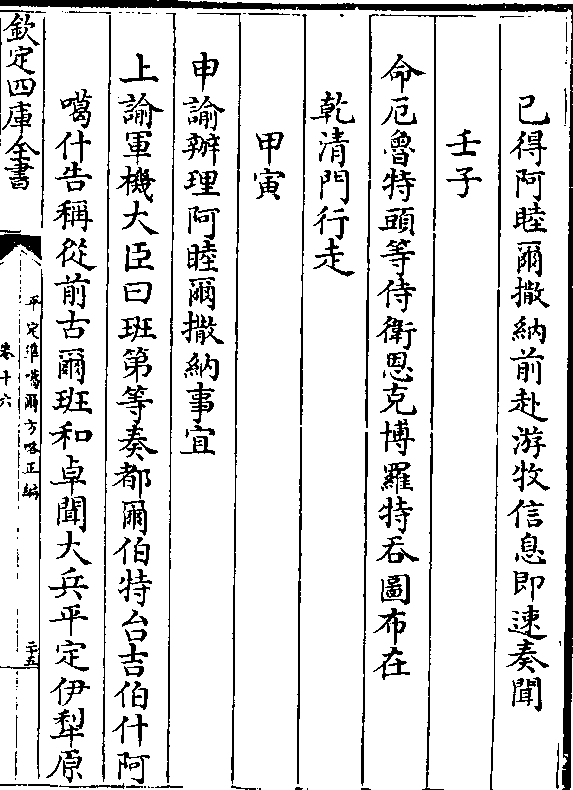 已得阿睦爾撒納前赴游牧信息即速奏聞
壬子
命厄魯特頭等侍衛恩克博羅特吞圖布在
乾清門行走
甲寅
申諭辦理阿睦爾撒納事宜
上諭軍機大臣曰班第等奏都爾伯特台吉伯什阿
噶什告稱從前古爾班和卓聞大兵平定伊犁原
欽定四庫全書
平定準噶爾方略正編
卷十六
二十五